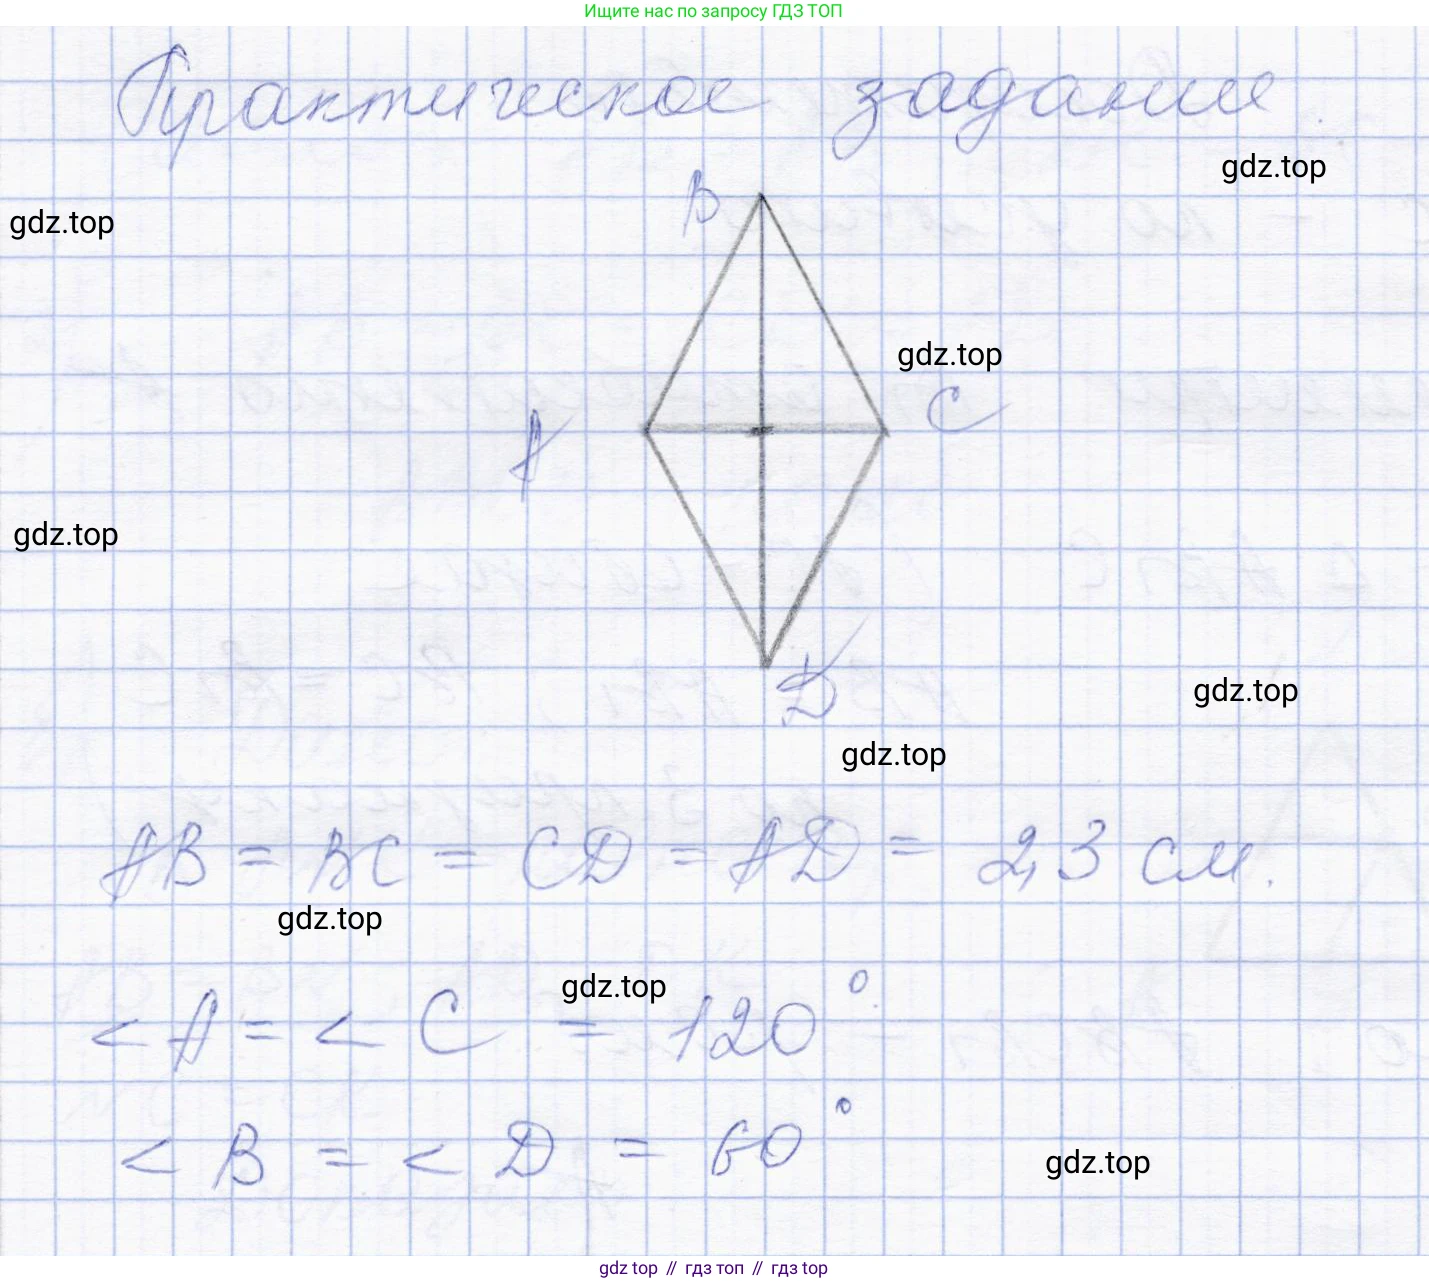 Ищите нас по запросу ГДЗ ТОП
Практическое задание
gdz.top
B
gdz.top
gdz.top
A
C
gdz.top
gdz.top
D
gdz.top
AB = BC = CD = AD = 2,3 см.
gdz.top
gdz.top
< A = < C = 120°
< B = < D = 60°
gdz.top
gdz top // гдз топ // гдз top